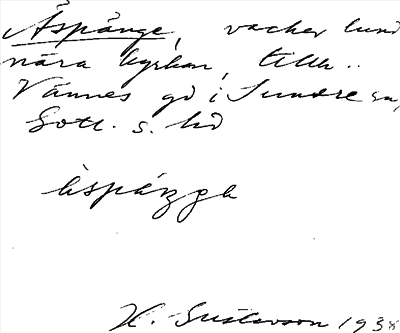 Äspånge, vacker lund
nära kyrkan, tillh..
Vännes gd i Sundre sn,
Gotl. s. hd
H. Gustavson 1938